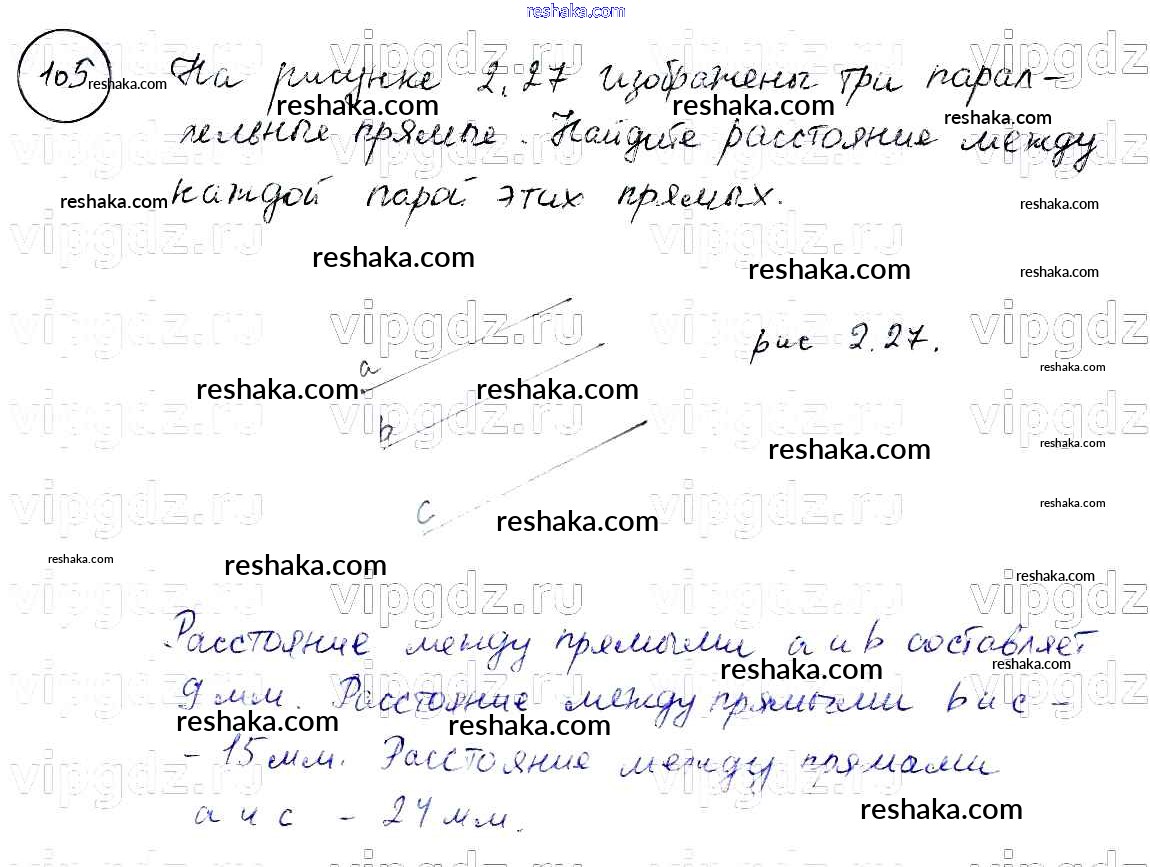 reshaka.com
105 На рисунке 2.27 изображены три парал-
лельные прямые. Найдите расстояние между
каждой парой этих прямых.
рис 2.27.
a
b
c
Расстояние между прямыми a и b составляет
9 мм. Расстояние между прямыми b и c -
- 15 мм. Расстояние между прямами
a и c - 24 мм.